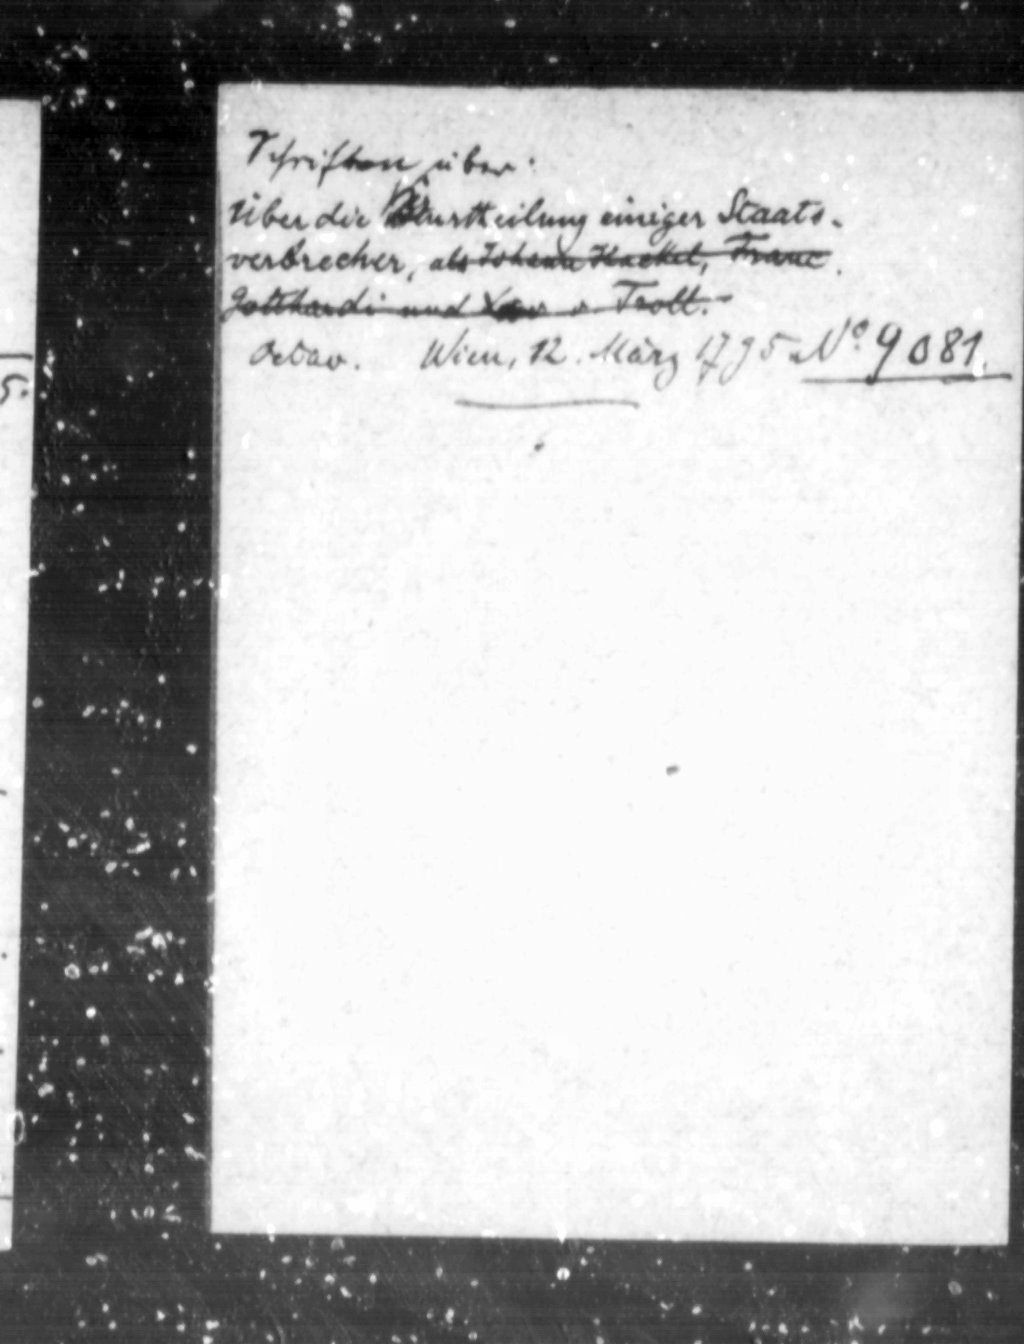 Schriften über:
Über die Beurtheilung einiger Staats-
verbrecher, als Johann Hackel, Franc.
Gotthardi und v. Troll.
Octav. Wien, 12. März 1795 No. 9081.
5.